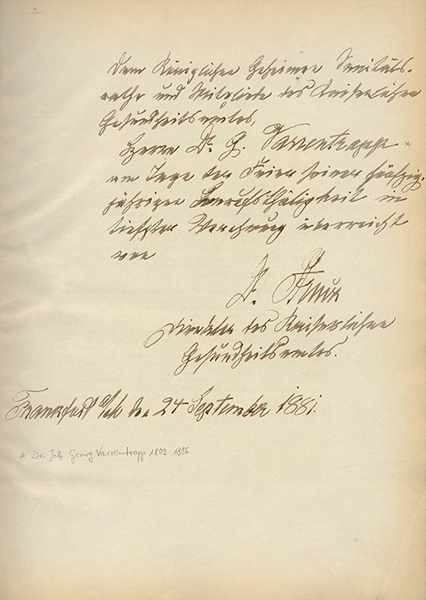 Dem Königlichen Geheimen Sanitäts-
rathe und Mitgliede des Kaiserlichen
Gesundheitsamtes,
Herrn Dr. G. Varrentrapp *
am Tage der Feier seiner fünfzig-
jährigen Berufsthätigkeit in
tiefster Verehrung überreicht
von
Dr. Struck
Direktor des Kaiserlichen
Gesundheitsamtes.
Frankfurt a/M den 24 September 1881.
* Dr. Joh. Georg Varrentrapp 1809-1886